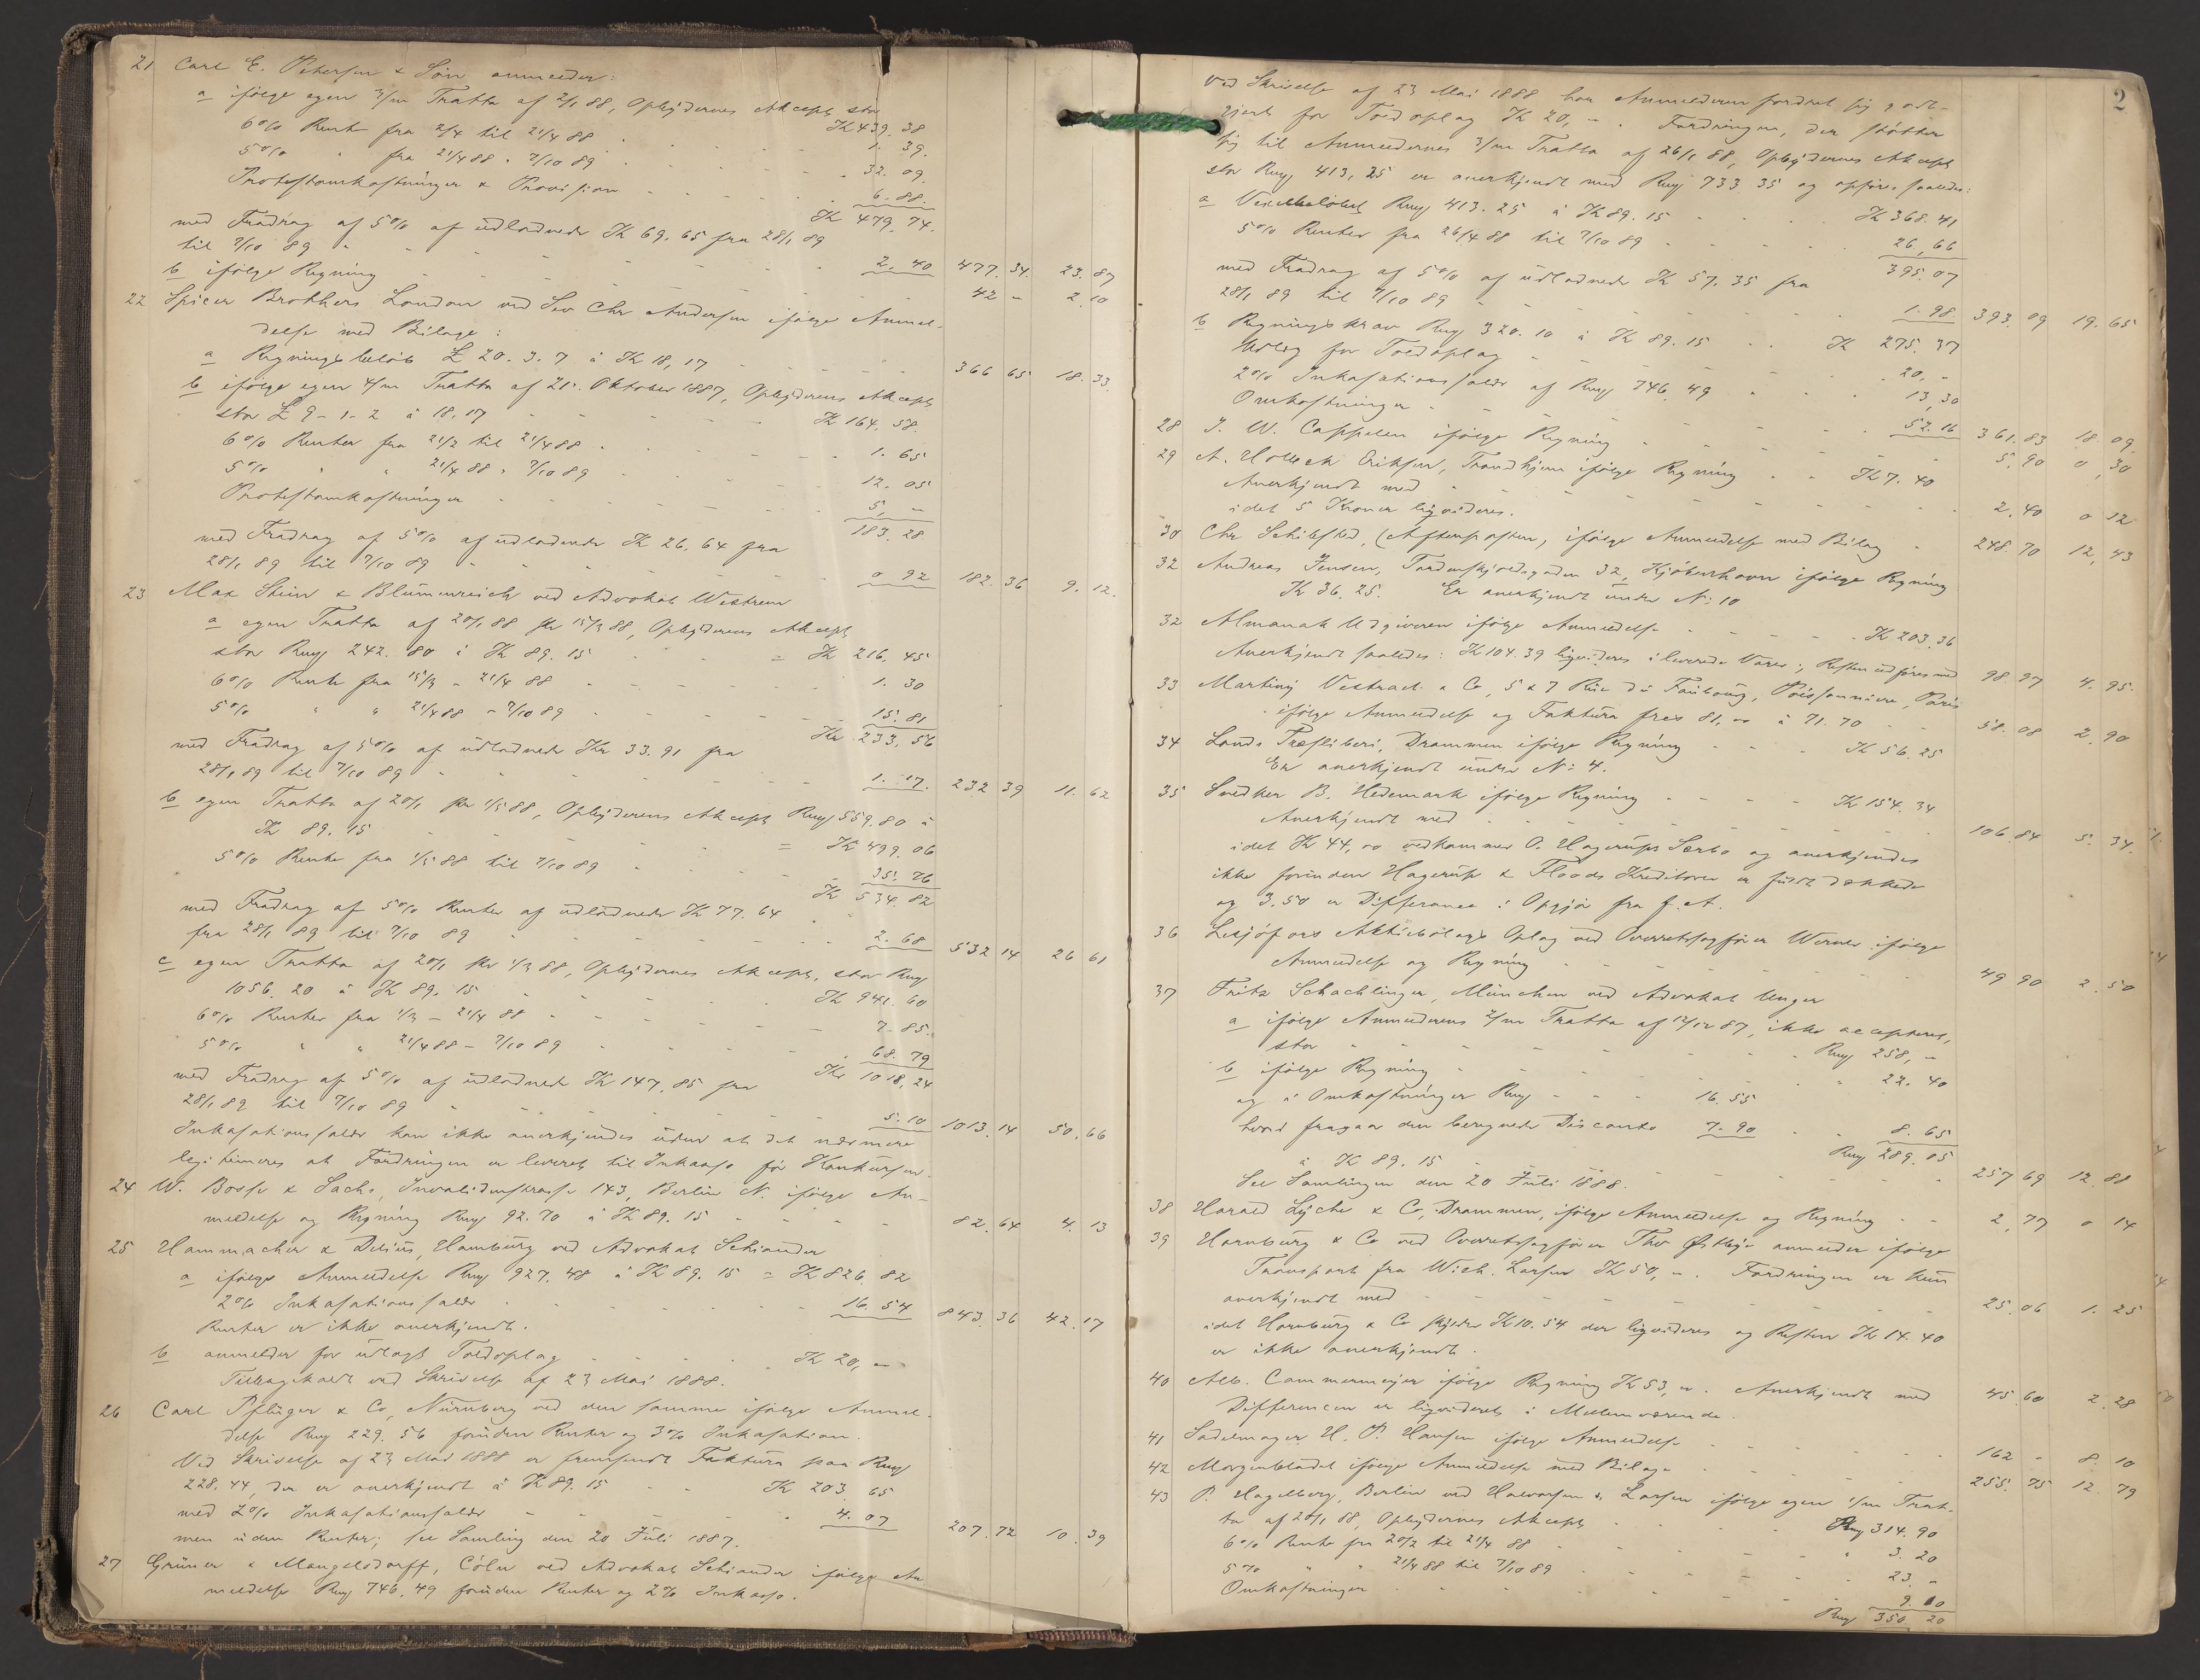 21 Carl E. Petersen & Søn anmelder:
a ifølge egen 3/m Tratta af 2/1 88, Opbydernes Akcept stor
Kr 439. 38
6% Rente fra 2/4 til 21/4 88 1. 39.
5% " fra 21/4 88 " 7/10 89 32. 09.
Protestomkostninger & Provision 6. 88.
Kr 479. 74.
med Fradrag af 5% af udlodnede Kr 69. 65 fra 28/1 89
til 7/10 89 2. 40 477. 34. 23. 87
b ifølge Regning 42 - 2. 10
22 Spicer Brothers London ved Sev Chr Andersen ifølge Anmel-
delse med Bilage:
a Regningsbeløb £ 20. 3. 7 à Kr 18,17 366 65 18. 33.
b ifølge egen 4/m Tratta af 21. Oktober 1887, Opbyderens Akcept
stor £ 9-1-2 à 18. 17 Kr 164. 58.
6% Renter fra 21/2 til 21/4 88 1. 65
5% " " 21/4 88 " 7/10 89 12. 05
Protestomkostninger 5, -
183. 28
med Fradrag af 5% af udlodnede Kr 26. 64 fra
28/1 89 til 7/10 89 0 92 182. 36 9. 12.
23 Max Stein & Blumenreich ved Advokat Westrum
a egen Tratta af 20/1 88 pr 15/3 88, Opbyderens Akcept
stor Rmg 242. 80 à Kr 89. 15 = Kr 216. 45
6% Rente fra 15/3 - 21/4 88 1. 30
5% " " 21/4 88 - 7/10 89 15. 81
Kr 233. 56
med Fradrag af 5% af udlodnede Kr 33. 91 fra
28/1 89 til 7/10 89 1. 17. 232 39 11. 62
b egen Tratta af 20/1 pr 1/5 88, Opbyderens Akcept Rmg 559. 80 à
Kr 89. 15 = Kr 499. 06
5% Rente fra 1/5 88 til 7/10 89 35. 76
Kr 534. 82
med Fradrag af 5% Renter af udlodnede Kr 77. 64
fra 28/1 89 til 7/10 89 2. 68 532 14 26 61
c egen Tratta af 20/1 pr 1/3 88, Opbydernes Akcept, stor Rmg
1056. 20 à Kr 89. 15 Kr 941. 60
6% Renter fra 1/3 - 21/4 88 7. 85.
5% " " 21/4 88 - 7/10 89 68. 79
Kr 1018. 24
med Fradrag af 5% af udlodnede Kr 147. 85 fra
28/1 89 til 7/10 89 5. 10 1013. 14 50. 66
Inkasationssalær kan ikke anerkjendes uden at det nærmere
legitimeres at Fordringen er leveret til Inkasso før Konkursen.
24 W. Bosse & Sachs, Invalidenstrasse 143, Berlin N. ifølge An-
meldelse og Regning Rmg 92. 70 à Kr 89. 15 82. 64 4. 13
25 Hammacher & Delius, Hamburg ved Advokat Schiander
a ifølge Anmeldelse Rmg 927. 48 à Kr 89. 15 = Kr 826. 82
2% Inkasationssalær 16. 54 843. 36 42. 17
Renter er ikke anerkjendt.
b anmelder for udlagt Toldoplag Kr 20, -
Tilbagekaldt ved Skrivelse af 23 Mai 1888.
26 Carl Pflüger & Co, Nürnberg ved den samme ifølge Anmel-
delse Rmg 229. 56 foruden Renter og 3% Inkasation.
Ved Skrivelse af 23 Mai 1888 er fremsendt Faktura paa Rmg
228. 44, der er anerkjendt à Kr 89. 15 Kr 203. 65
med 2% Inkasationssalær 4. 07 207. 72 10. 39
men uden Renter; see Samling den 20 Juli 1887.
27 Grüner & Mangelsdorff, Cöln ved Advokat Schiander ifølge An
meldelse Rmg 746. 49 foruden Renter og 2% Inkasso.
2
Ved Skrivelse af 23 Mai 1888 har Anmelderen fordret sig godt-
gjort for Toldoplag Kr 20, -. Fordringen, der støtter
sig til Anmeldernes 3/m Tratta af 26/1 88, Opbydernes Akcept
stor Rmg 413, 25 er anerkjendt med Rmg 733 35 og opføres saaledes:
a Vexelbeløbet Rmg 413. 25 à Kr 89. 15 Kr 368. 41
5% Renter fra 26/4 88 til 7/10 89 26, 66
395. 07
med Fradrag af 5% af udlodnede Kr 57. 35 fra
28/1 89 til 7/10 89 1. 98. 393. 09 19. 65
b Regningskrav Rmg 320. 10 à Kr 89. 15 Kr 275. 37
Udlæg for Toldoplag 20, -
2% Inkasationssalær af Rmg 746. 49 13, 30
Omkostninger 52. 16 361. 83 18. 09.
28 J. W. Cappelen ifølge Regning 5. 90 0, 30
29 A. Holbæk Eriksen, Trondhjem ifølge Regning Kr 7. 40
Anerkjendt med 2. 40 0 12
idet 5 Kroner ligvideres.
30 Chr Schibsted, (Aftenposten, ifølge Anmeldelse med Bilag 248. 70 12, 43
32 Andreas Jensen, Tordenskjoldsgaden 32, Kjøbenhavn ifølge Regning
Kr 36. 25. Er anerkjendt under N: 10
32 Almanak Udgiveren ifølge Anmeldelse Kr 203. 36
Anerkjendt saaledes: Kr 104. 39 ligvideres i leverede Varer; Resten udføres med 98. 97 4. 95.
33 Martiny Vestraet & Co, 5 & 7 Rue du Faubourg, Poissonniere, Paris
ifølge Anmeldelse og Faktura frcs 81, 00 à 71. 70 58. 08 2. 90
34 Lunds Træsliberi, Drammen ifølge Regning Kr 56. 25
Er anerkjendt under N: 4.
35 Snedker B. Hedemark ifølge Regning Kr 154. 34
Anerkjendt med 106. 84 5. 34.
idet Kr 44, 00 vedkommer O. Hagerups Særbo og anerkjendes
ikke forinden Hagerup & Floods Kreditorer er fuldt dækkede
og 3. 50 er Differance i Opgjør fra f. A.
36 Lesjöfors Aktiebolags Oplag ved Overretssagfører Werner ifølge
Anmeldelse og Regning 49 90 2. 50
37 Fritz Schachlinger, München ved Advokat Unger
a ifølge Anmelderens 2/m Tratta af 12/12 87, ikke accepteret,
stor Rmg 258, -
b ifølge Regning " 22. 40
og i Omkostninger Rmg 16. 55
hvori fragaar den beregnede Disconto 7. 90 8. 65
Rmg 289. 05
à Kr 89. 15 257 69 12. 88
See Samlingen den 20 Juli 1888.
38 Harald Lyche & Co, Drammen, ifølge Anmeldelse og Regning 2, 77 0 14
39 Hornburg & Co ved Overretssagfører Thv Østbye anmelder ifølge
Transport fra Wilh. Larsen Kr 50, -. Fordringen er kun
anerkjendt med 25. 06 1. 25
idet Hornburg & Co skylder Kr 10. 54 der ligvideres og Resten Kr 14. 40
er ikke anerkjendt.
40 Alb. Cammermeyer ifølge Regning Kr 53, -. Anerkjendt med 45. 60 2. 28
Differencen er ligvideret i Mellemværende.
41 Sadelmager H. P. Hansen ifølge Anmeldelse 162 - 8. 10
42 Morgenbladet ifølge Anmeldelse med Bilage 255. 75 12. 79
43 P. Hagelberg, Berlin ved Halvorsen & Larsen ifølge egen 1/m Trat-
ta af 20/1 88, Opbydernes Akcept Rmg 314. 90
6% Rente fra 20/2 til 21/4 88 " 3. 20
5% " " 21/4 88 til 7/10 89 23. -
Omkostninger 9. 10
Rmg 350. 20